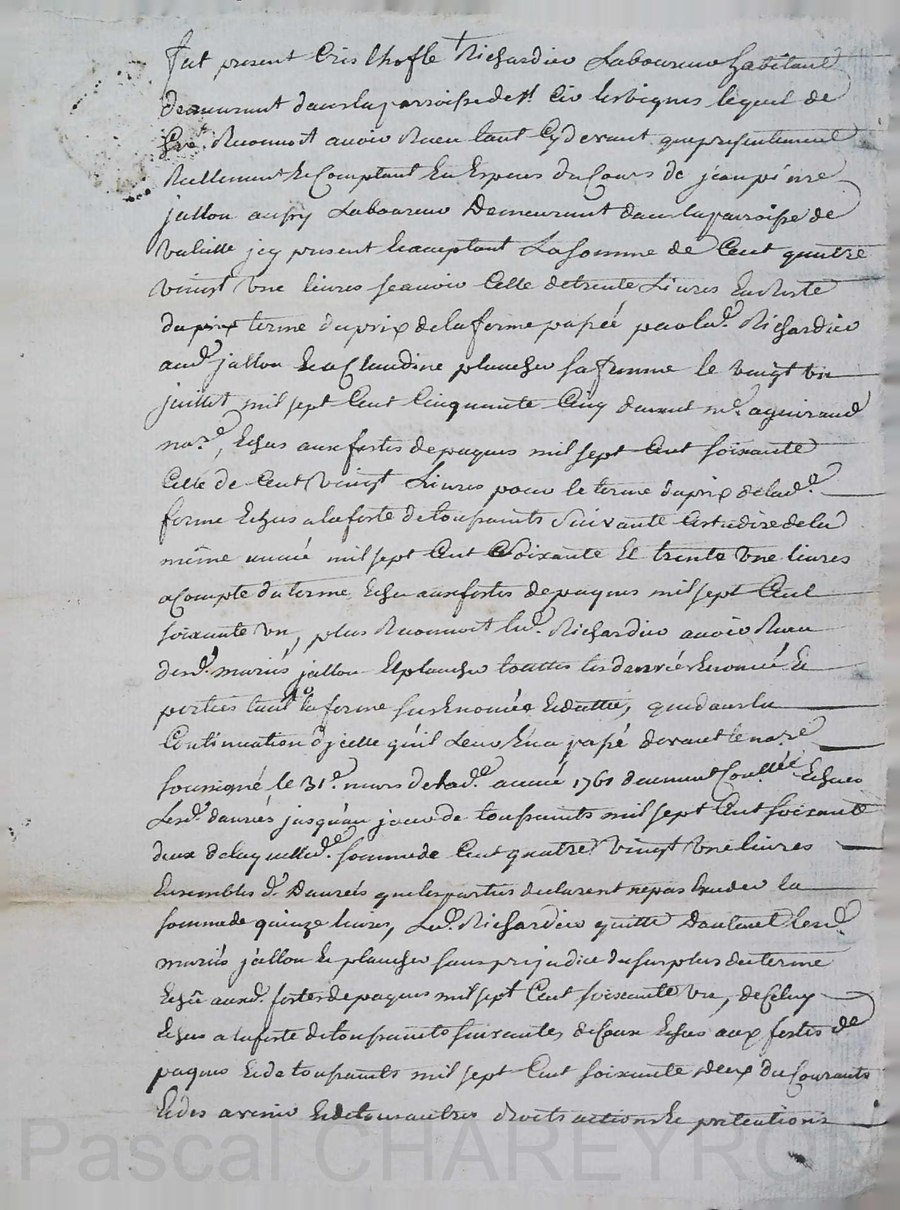 fut present Cristhofle Richardier Laboureur habitant
demeurant dans la parroisse de st Cir les vignes lequel de
gré Reconnoit avoir Receu tant Cy devant que presentement
Reellement & Comptant En Especes du Cours de jean pierre
jallon aussy Laboureur Demeurant dans la parroisse de
Valeille jcy present & acceptant La somme de Cent quatre
vingt vne livres scavoir Celle de trente Livres En Reste
du terme du prix de la ferme passée par led. Richardier
aud. jallon & a Claudine plancher sa femme le vaingt un
juillet mil sept Cent Cinquante Cinq devant me. aguiraud
nore., Echus aux festes de paques mil sept Cent soixante
Celle de Cent Vingt Livres pour le terme du prix de lad.
ferme Echus a la feste de toussaints Suivante Cest adire de la
même année mil sept Cent Soixante Et trente vne livres
a Compte du terme Echu aux festes de paques mil sept Cent
soixante un, plus Reconnoit led. Richardier avoir Receu
desd. mariés jallon & plancher touttes les danrées Enoncé &
portées tant la ferme sus Enoncée & dattée, que dans la
Continuation d'jcelle qu'il Leur En a passé devant le nore.
soussigné le 31e. mars de lad. année 1761 deument Conllée Echues
Lesd. danrées jusqu'au jour de toussaints mil sept Cent soixante
deux de laquelle d. somme de Cent quatre vingt vne livres
Ensembles d. Danreés que les parties declarent ne pas Exceder la
somme de quinze livres, Led. Richardier quitte Dautant lesd.
mariés jallon & plancher sans prejudice du surplus du terme
Echû auxd. festes de paques mil sept Cent soixante un, de Celuy
Echus a la feste de toussaints suivante, de Ceux Echus aux festes de
paques & de toussaints mil sept Cent soixante deux du Courants
& des avenir & de tous autres droits actions & pretentions
Pascal CHAREYRON